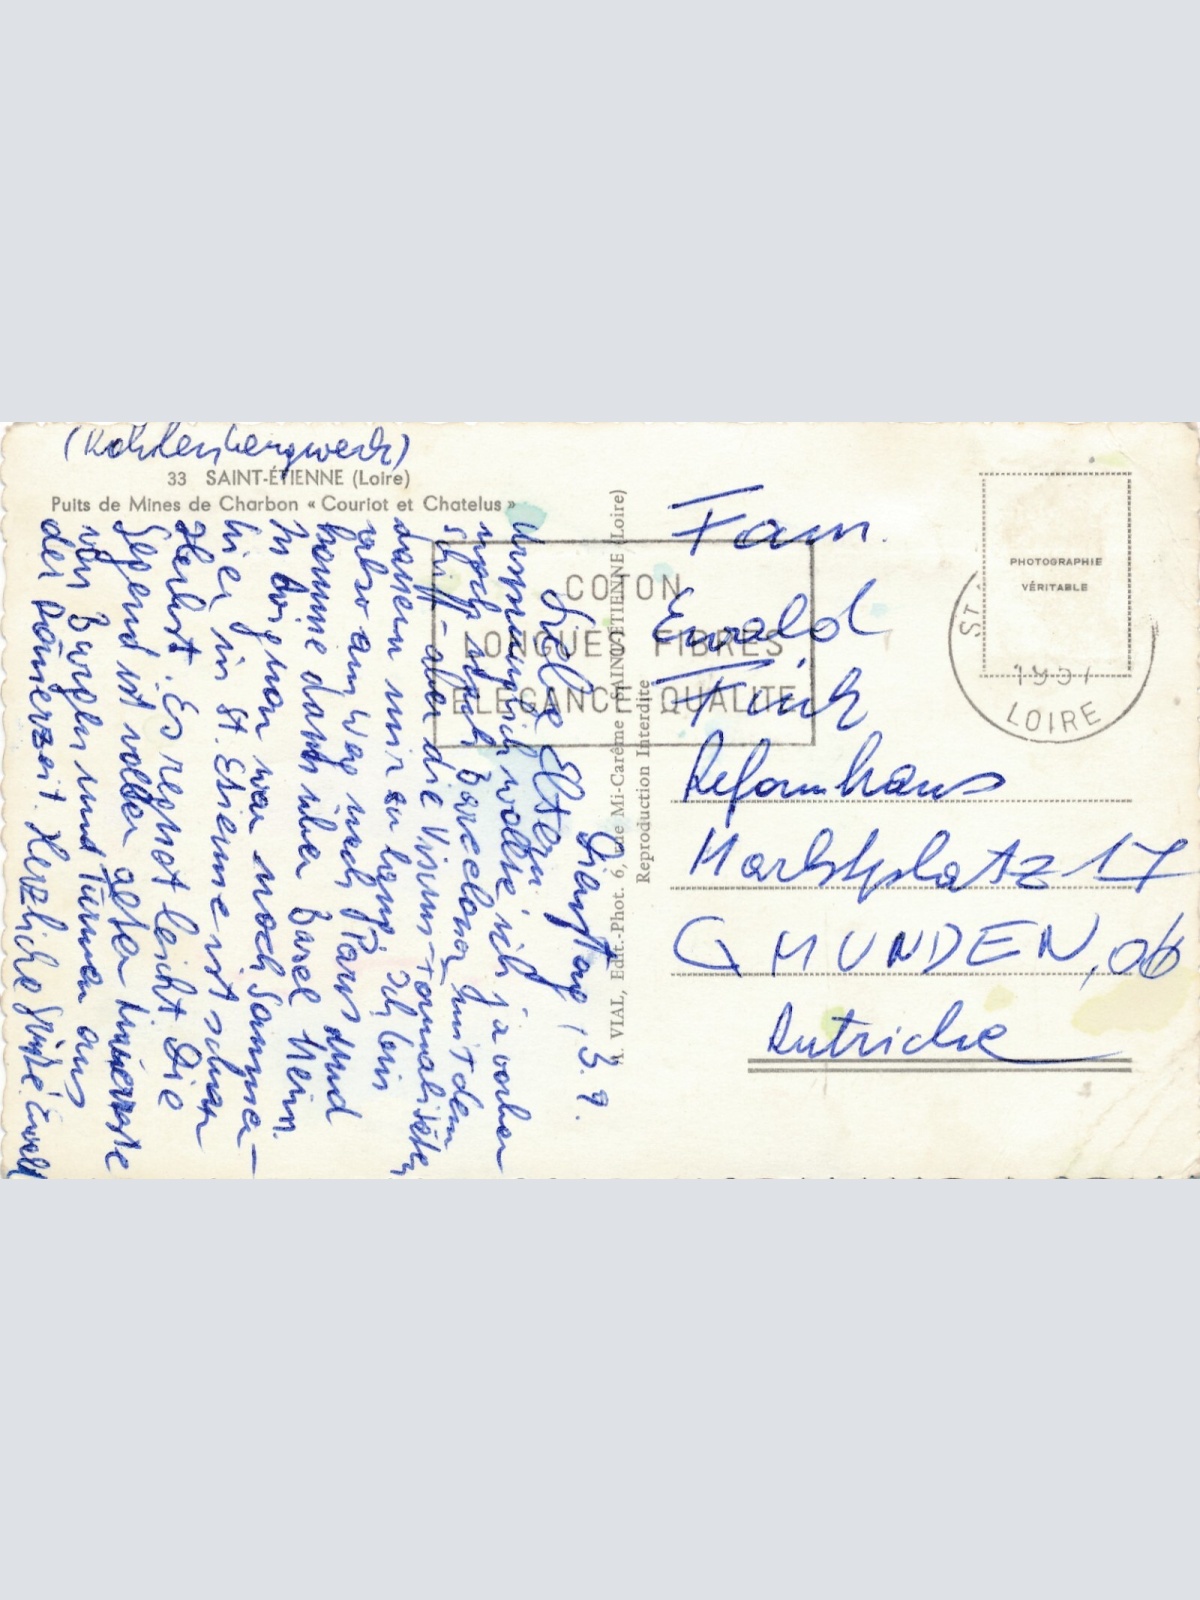 (Kohlenbergwerk)
33 SAINT-ÉTIENNE (Loire)
Puits de Mines de Charbon « Couriot et Chatelus »
Dienstag, 3. 9.
Liebe Eltern!
Ursprünglich wollte ich ja vorher
noch nach Barcelona mit dem
Schiff - aber die Visum-Formalitäten
dauern mir zu lang. Ich bin
also am Weg nach Paris und
komme dann über Basel heim.
In Avignon war noch Sommer -
hier in St. Etienne ist schon
Herbst. Es regnet leicht. Die
Gegend ist voller alter
von Burgen und Türmen aus
der Römerzeit. Herzliche Grüße Ewald
A. VIAL, Edit.-Phot. 6, rue Mi-Carême SAINT-ÉTIENNE (Loire)
Reproduction Interdite
COTON
LONGUES FIBRES
ELEGANCE QUALITE
PHOTOGRAPHIE
VÉRITABLE
ST
1957
LOIRE
Fam.
Ewald
Reformhaus
Marktplatz 17
GMUNDEN, OÖ
Autriche